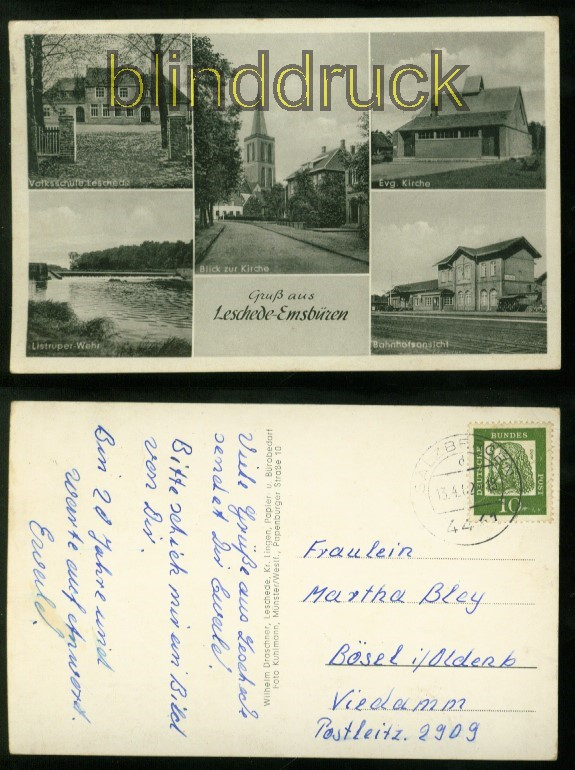 blinddruck
Volksschule Leschede
Blick zur Kirche
Evg. Kirche
Listruper-Wehr
Gruß aus
Leschede-Emsbüren
Bahnhofsansicht
Viele Grüße aus Leschede
sendet Dir Ewald!
Bitte schick mir ein Bild
von Dir.
Bin 28 Jahre und
warte auf Antwort.
Ewald!
Wilhelm Draschner, Leschede, Kr. Lingen, Papier- u. Bürobedarf
Foto Kuhlmann, Münster/Westf., Papenburger Straße 10
DEUTSCHE
BUNDES
POST
10
13.4.62
Fraulein
Martha Bley
Bösel i/Oldenb
Viedamm
Postleitz. 2909